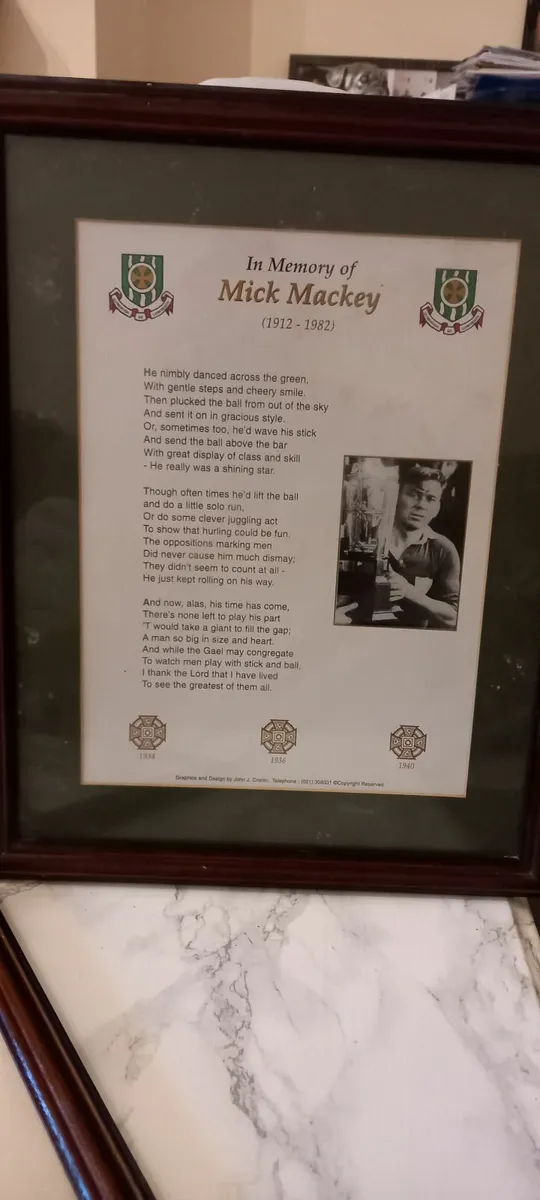 In Memory of
Mick Mackey
(1912 - 1982)
He nimbly danced across the green,
With gentle steps and cheery smile.
Then plucked the ball from out of the sky
And sent it on in gracious style.
Or, sometimes too, he'd wave his stick
And send the ball above the bar
With great display of class and skill
- He really was a shining star.
Though often times he'd lift the ball
and do a little solo run,
Or do some clever juggling act
To show that hurling could be fun.
The oppositions marking men
Did never cause him much dismay;
They didn't seem to count at all -
He just kept rolling on his way.
And now, alas, his time has come,
There's none left to play his part
'T would take a giant to fill the gap;
A man so big in size and heart.
And while the Gael may congregate
To watch men play with stick and ball,
I thank the Lord that I have lived
To see the greatest of them all.
1934
1936
1940
Graphics and Design by John J. Telephone : (021) ©Copyright Reserved